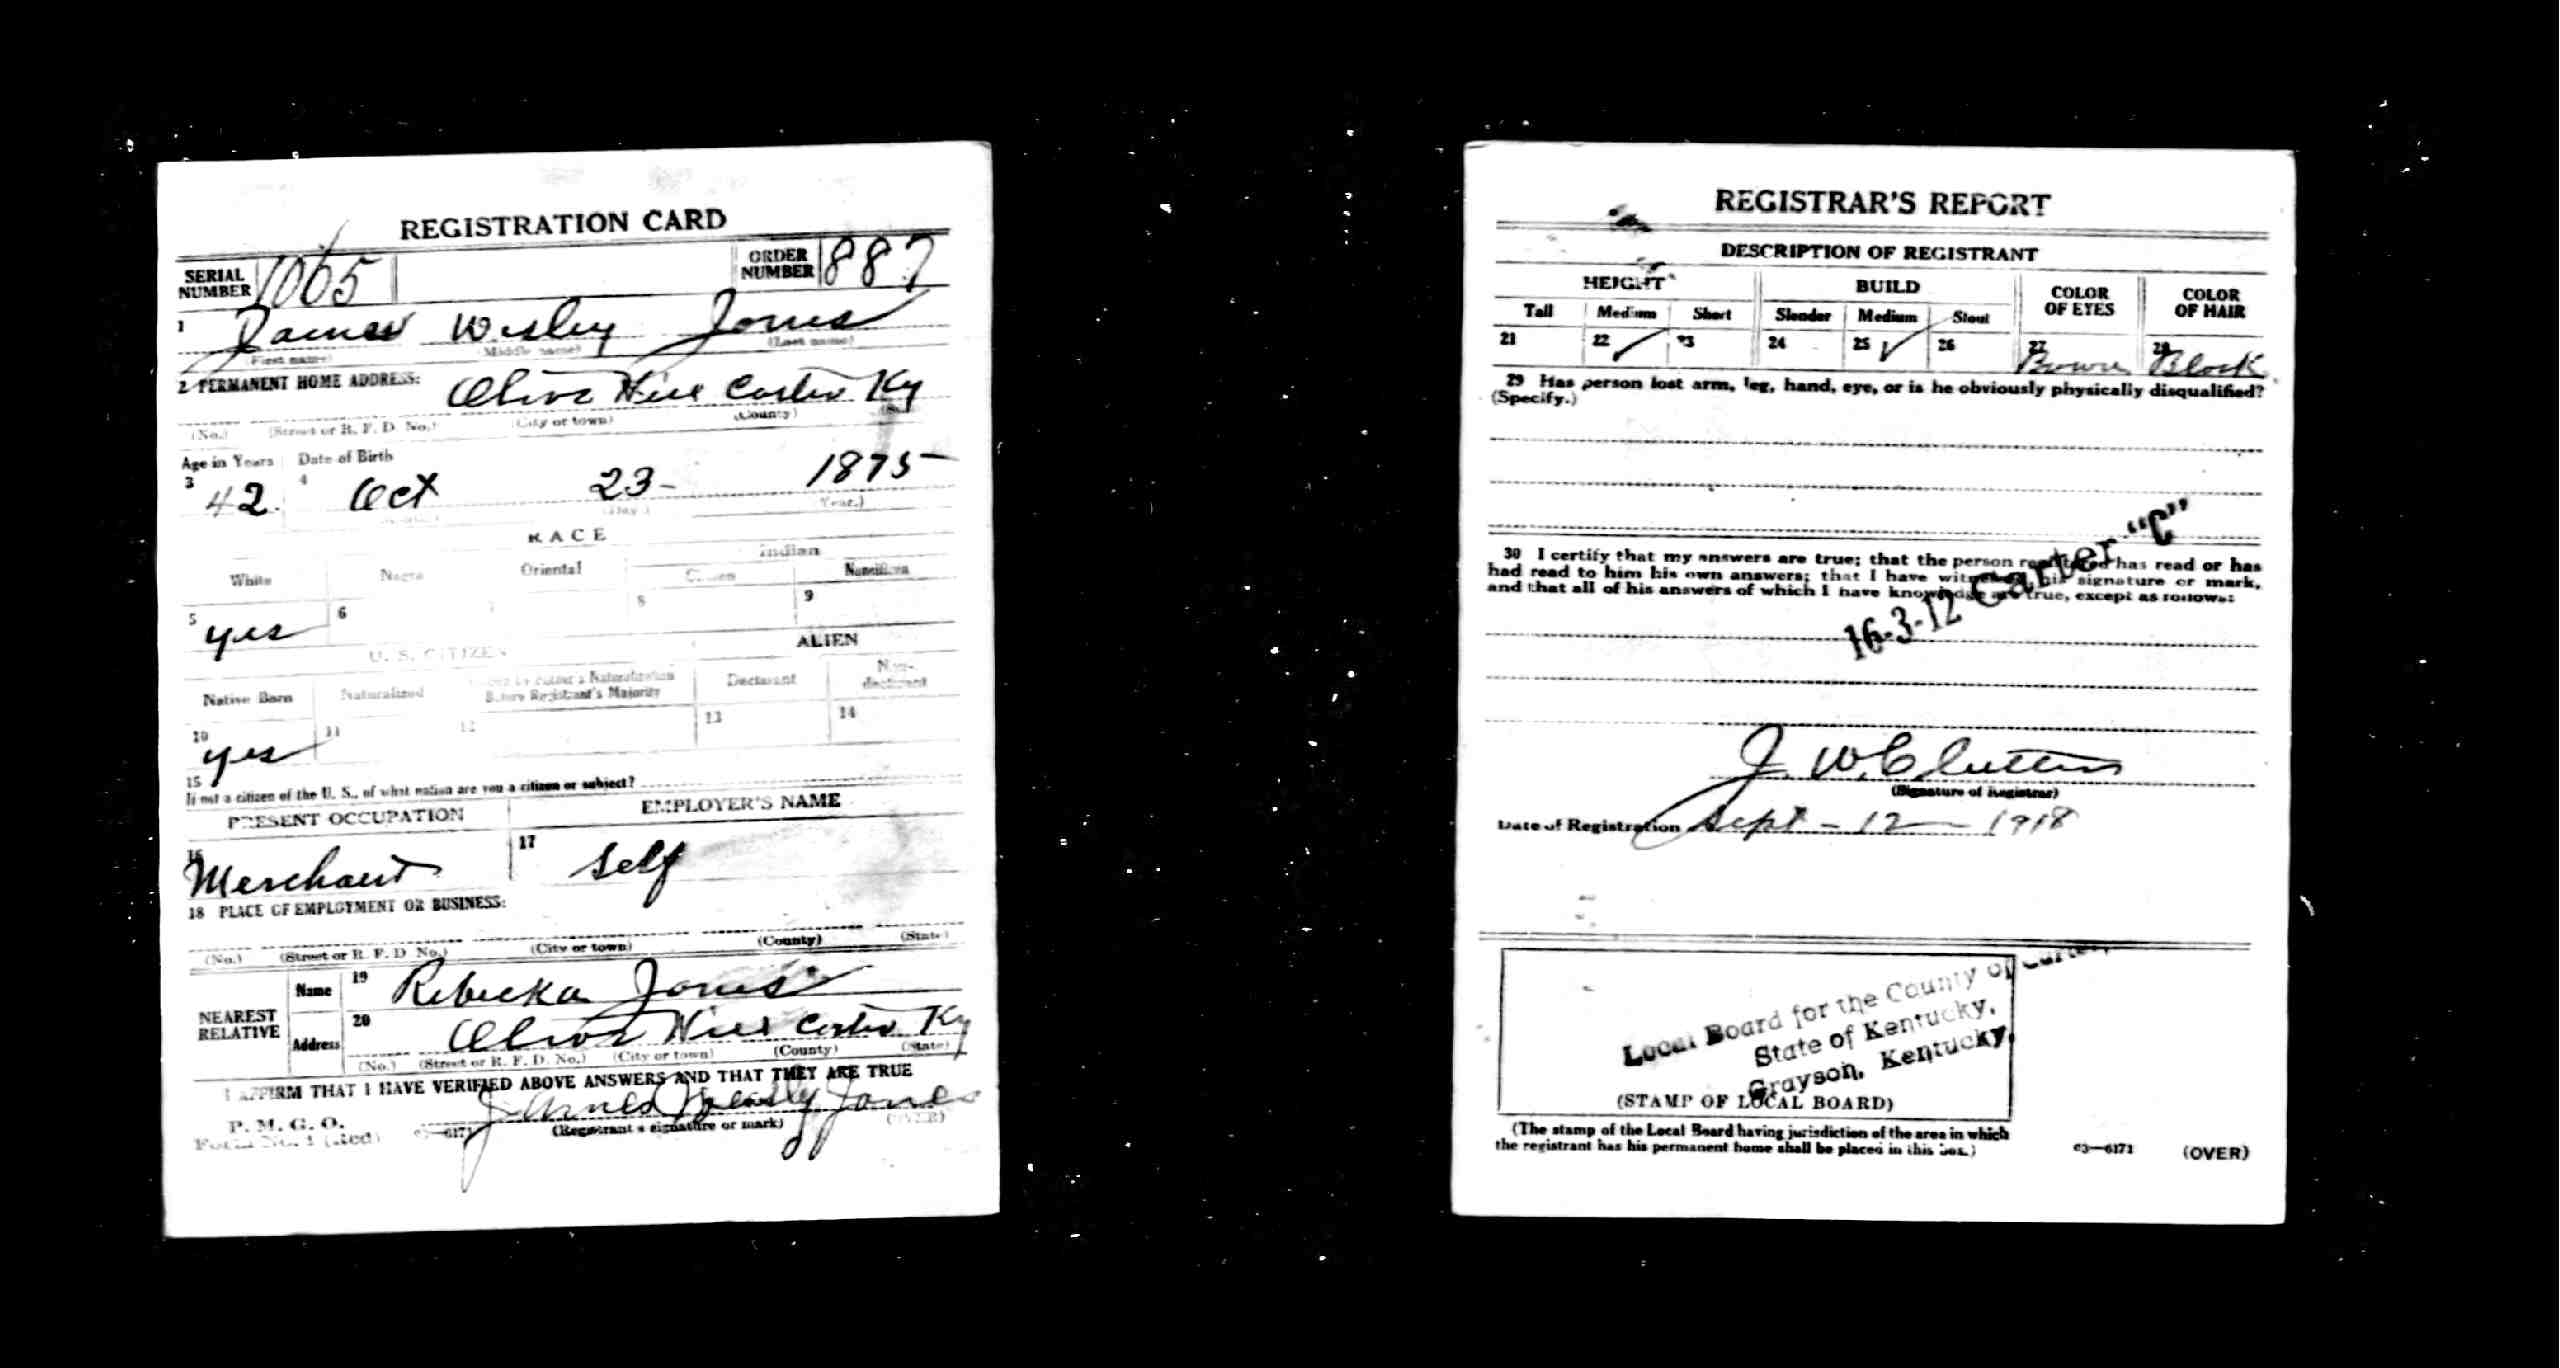 REGISTRATION CARD
SERIAL NUMBER 1065 ORDER NUMBER 887
1 James Wesley Jones
(First name) (Middle name) (Last name)
2 PERMANENT HOME ADDRESS: Olive Hill Carter Ky
(No.) (Street or R. F. D. No.) (City or town) (County)
Age in Years Date of Birth
3 42. 4 Oct 23- 1875-
(Day) (Year.)
RACE
White Negro Oriental Indian
Citizen Noncitizen
5 yes 6 7 8 9
U. S. CITIZEN ALIEN
Native Born Naturalized Father's Naturalization Before Registrant's Majority Declarant Non-declarant
10 yes 11 12 13 14
15 If not a citizen of the U. S., of what nation are you a citizen or subject?
PRESENT OCCUPATION EMPLOYER'S NAME
16 Merchant 17 self
18 PLACE OF EMPLOYMENT OR BUSINESS:
(No.) (Street or R. F. D. No.) (City or town) (County) (State)
NEAREST RELATIVE Name 19 Rebecka Jones
Address 20 Olive Hill Carter Ky
(No.) (Street or R. F. D. No.) (City or town) (County) (State)
I AFFIRM THAT I HAVE VERIFIED ABOVE ANSWERS AND THAT THEY ARE TRUE
P. M. G. O.
Form No. 1 (Red) 03—6171 James Weasly Jones
(Registrant's signature or mark) (OVER)
REGISTRAR'S REPORT
DESCRIPTION OF REGISTRANT
HEIGHT BUILD COLOR OF EYES COLOR OF HAIR
Tall Medium Short Slender Medium Stout
21 22 ✓ 23 24 25 ✓ 26 27 Brown 28 Black
29 Has person lost arm, leg, hand, eye, or is he obviously physically disqualified?
(Specify.)
30 I certify that my answers are true; that the person registered has read or has
had read to him his own answers; that I have witnessed his signature or mark,
and that all of his answers of which I have knowledge are true, except as follows:
16-3-12 Carter "C"
J. W. 
(Signature of Registrar)
Date of Registration Sept - 12 - 1918
Local Board for the County of Carter,
State of Kentucky,
Grayson, Kentucky.
(STAMP OF LOCAL BOARD)
(The stamp of the Local Board having jurisdiction of the area in which
the registrant has his permanent home shall be placed in this box.)
03—6171 (OVER)